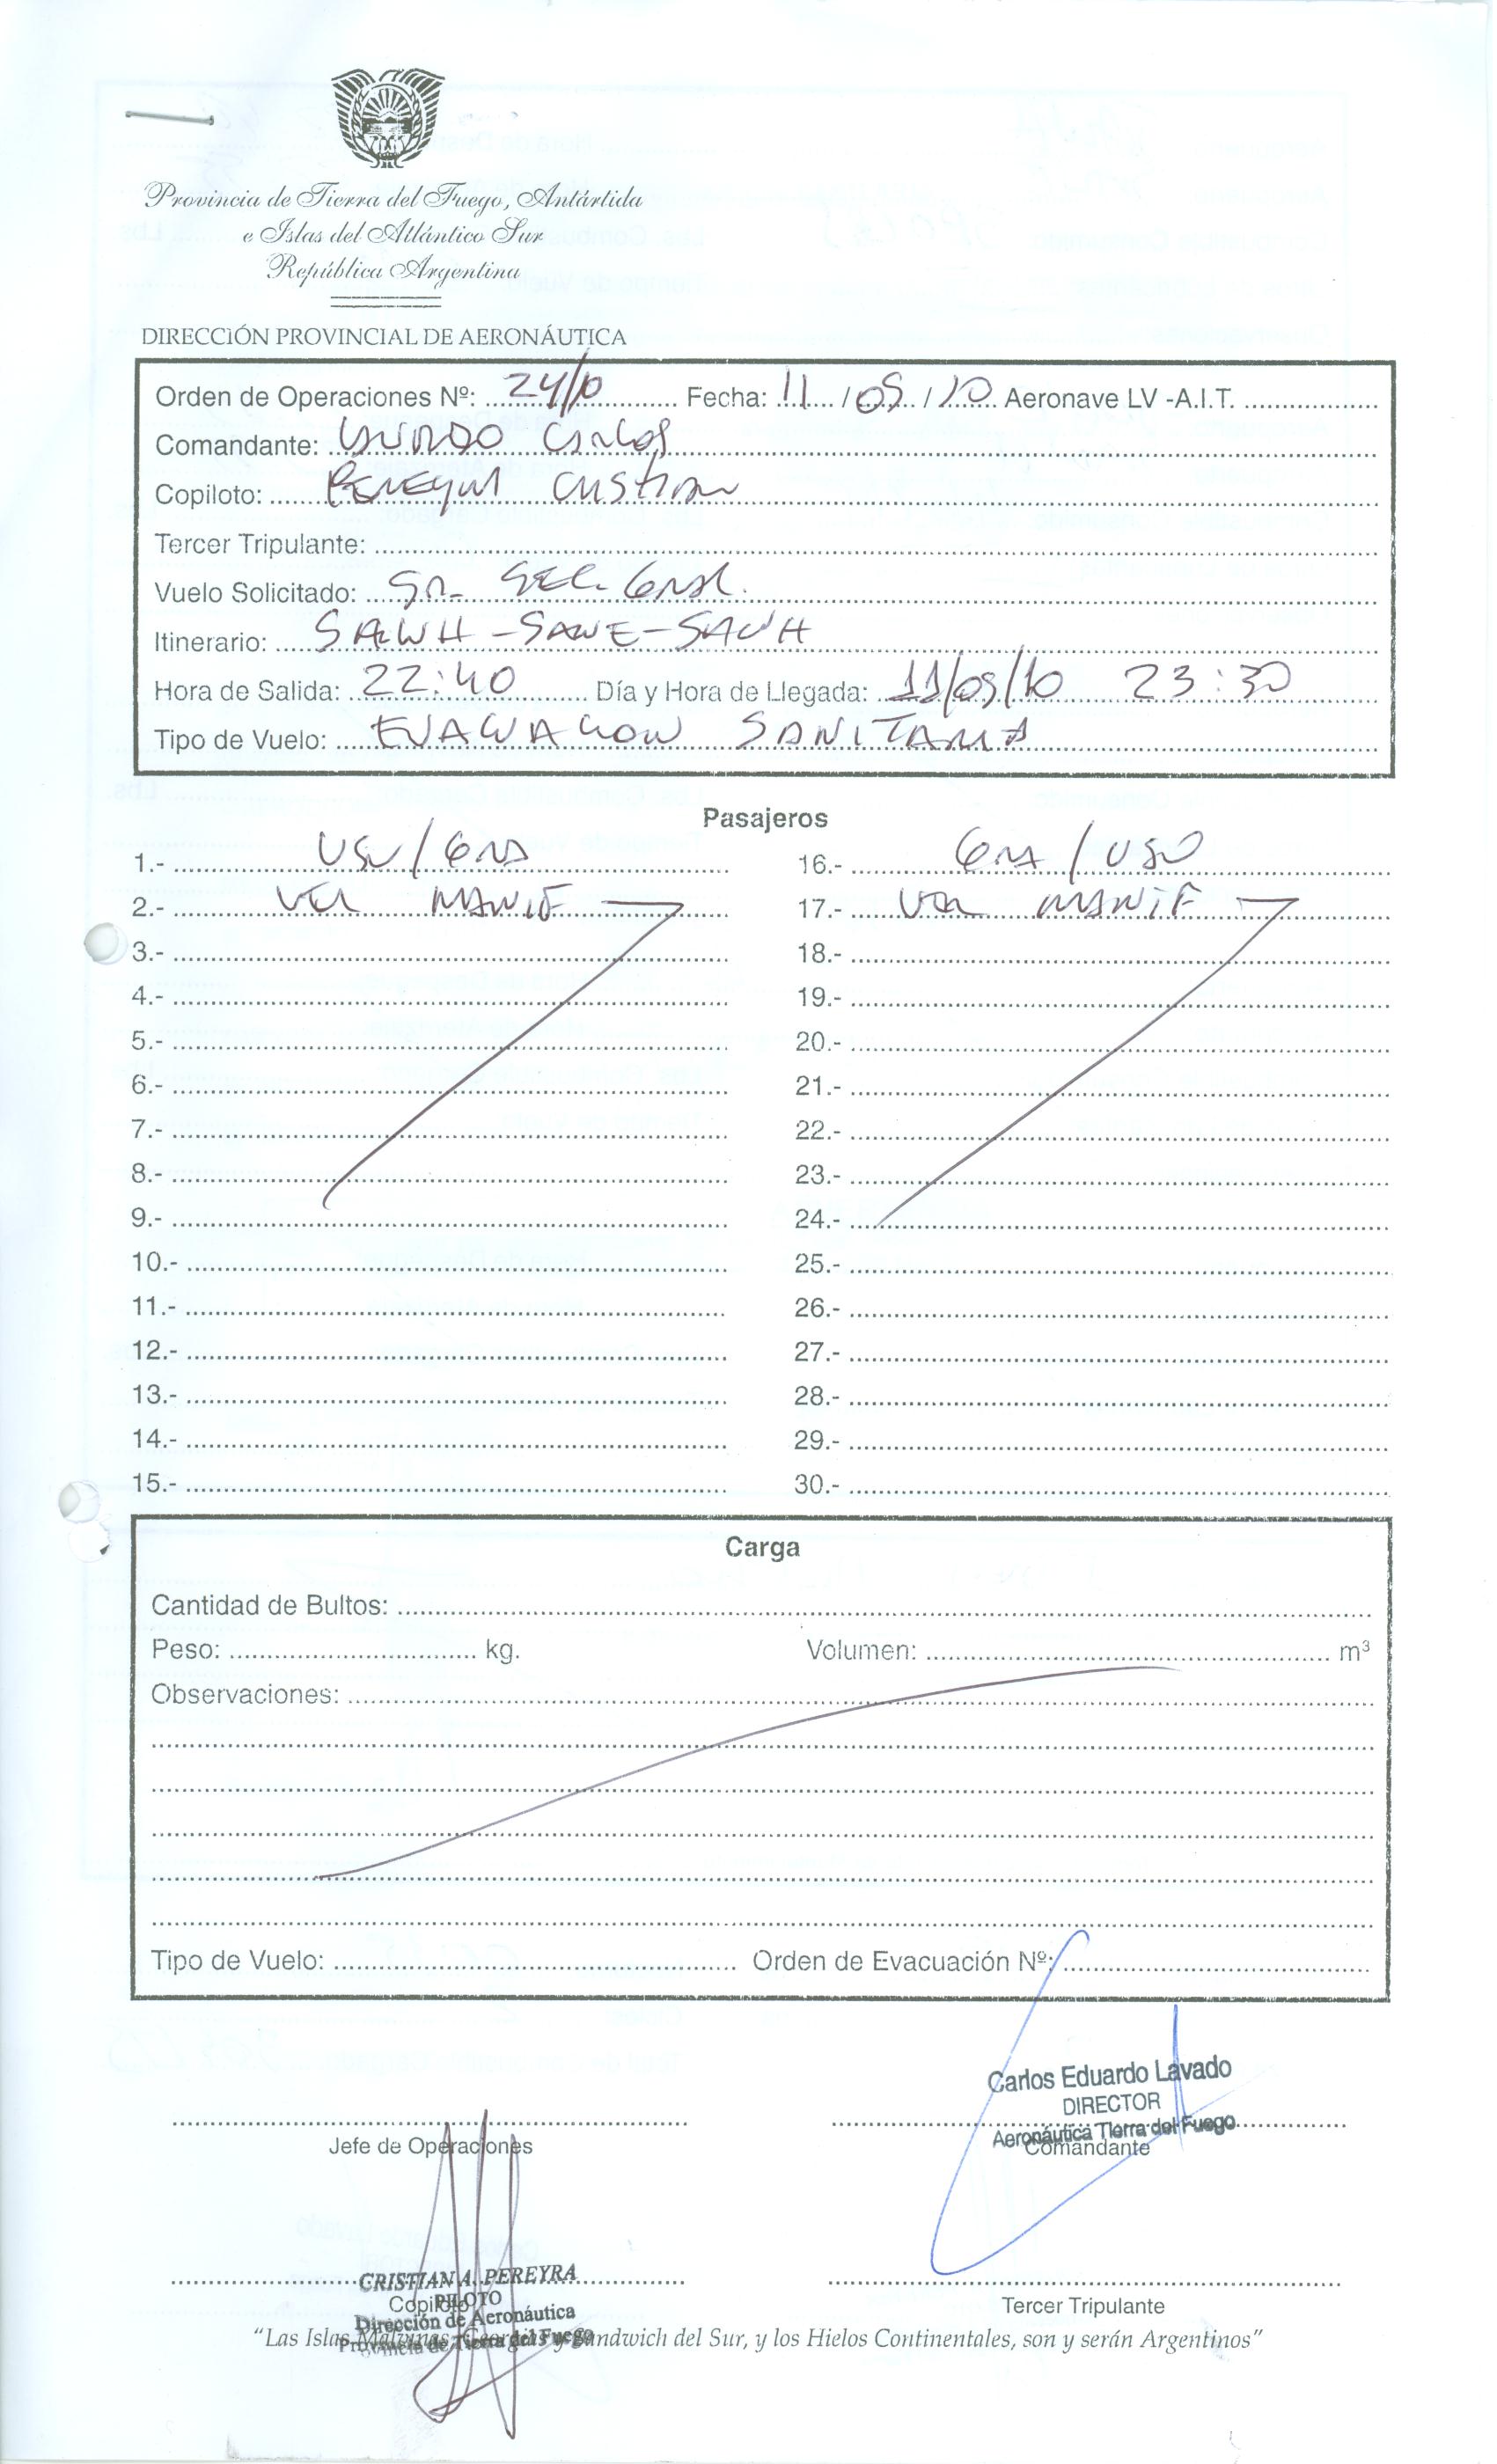 Provincia de Tierra del Fuego, Antártida
e Islas del Atlántico Sur
República Argentina
DIRECCIÓN PROVINCIAL DE AERONÁUTICA
Orden de Operaciones Nº: 24/10 Fecha: 11 / 09 / 10 Aeronave LV -A.I.T.
Comandante: LAVADO CARLOS
Copiloto: PEREYRA CRISTIAN
Tercer Tripulante:
Vuelo Solicitado: SR. SEC. GRAL.
Itinerario: SAWH - SAWE - SAWH
Hora de Salida: 22:40 Día y Hora de Llegada: 11/09/10 23:30
Tipo de Vuelo: EVACUACION SANITARIA
Pasajeros
1.- USU/GRA 16.- GRA/USU
2.- VER MANIF 17.- VER MANIF
3.- 18.-
4.- 19.-
5.- 20.-
6.- 21.-
7.- 22.-
8.- 23.-
9.- 24.-
10.- 25.-
11.- 26.-
12.- 27.-
13.- 28.-
14.- 29.-
15.- 30.-
Carga
Cantidad de Bultos:
Peso: kg. Volumen: m³
Observaciones:
Tipo de Vuelo: Orden de Evacuación Nº:
Carlos Eduardo Lavado
DIRECTOR
Aeronáutica Tierra del Fuego
Jefe de Operaciones Comandante
CRISTIAN A. PEREYRA
PILOTO
Copiloto Tercer Tripulante
Dirección de Aeronáutica
Provincia de Tierra del Fuego
"Las Islas Malvinas, Georgias y Sandwich del Sur, y los Hielos Continentales, son y serán Argentinos"